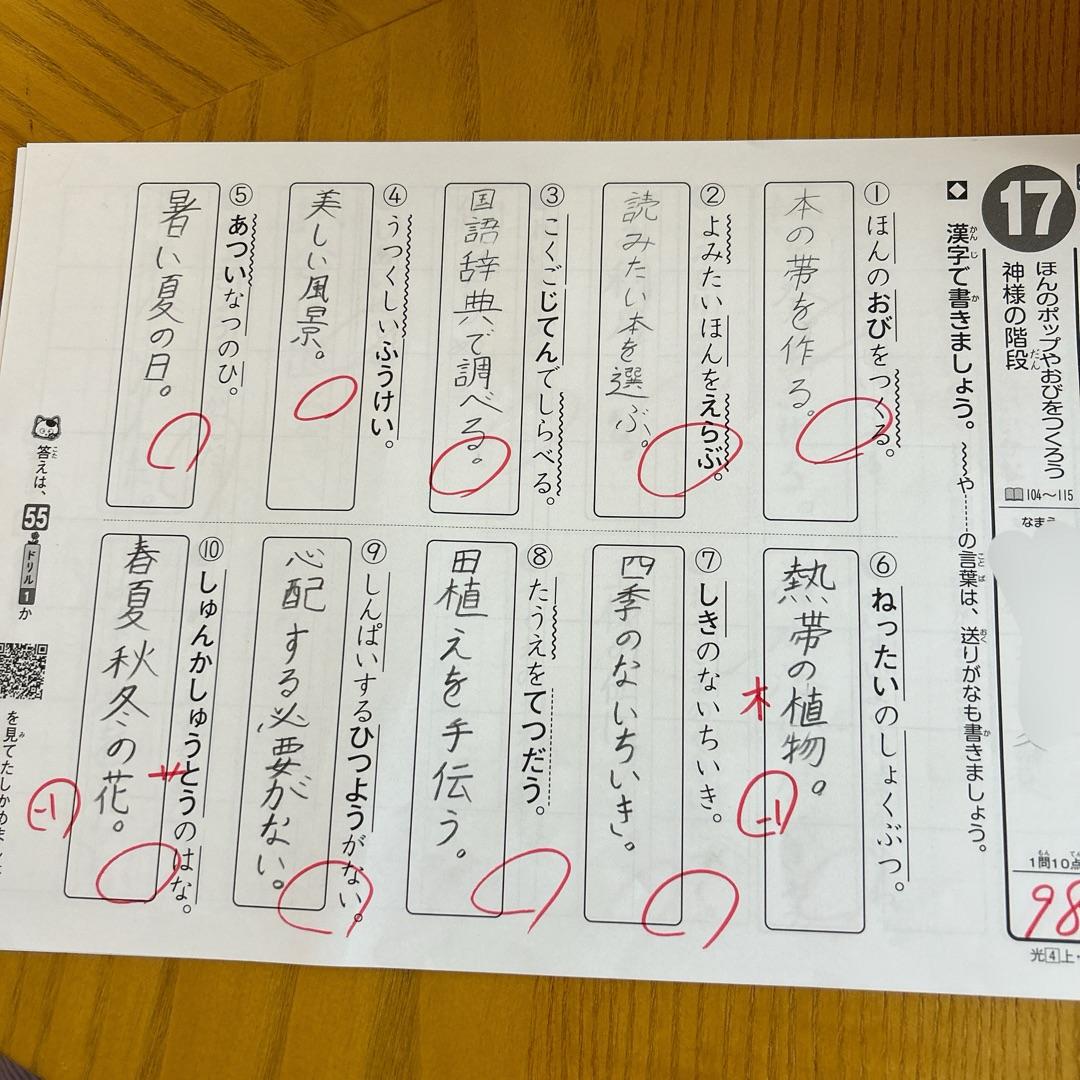 17
ほんのポップやおびをつくろう
神様の階段
だん
104〜115
1問10点
もん
てん
98
光4上
◆漢字で書きましょう。〜〜や-----の言葉は、送りがなも書きましょう。
かんじ
か
ことば
おく
か
①ほんのおびをつくる。
本の帯を作る。
②よみたいほんをえらぶ。
読みたい本を選ぶ。
③こくごじてんでしらべる。
国語辞典で調べる。
④うつくしいふうけい。
美しい風景。
⑤あついなつのひ。
暑い夏の日。
⑥ねったいのしょくぶつ。
熱帯の植物。
木
-1
⑦しきのないちいき。
四季のないちいき。
⑧たうえをてつだう。
田植えを手伝う。
⑨しんぱいするひつようがない。
心配する必要がない。
⑩しゅんかしゅうとうのはな。
春夏秋冬の花。
-1
答えは、55
こた
ドリル1か
を見てたしかめま
み